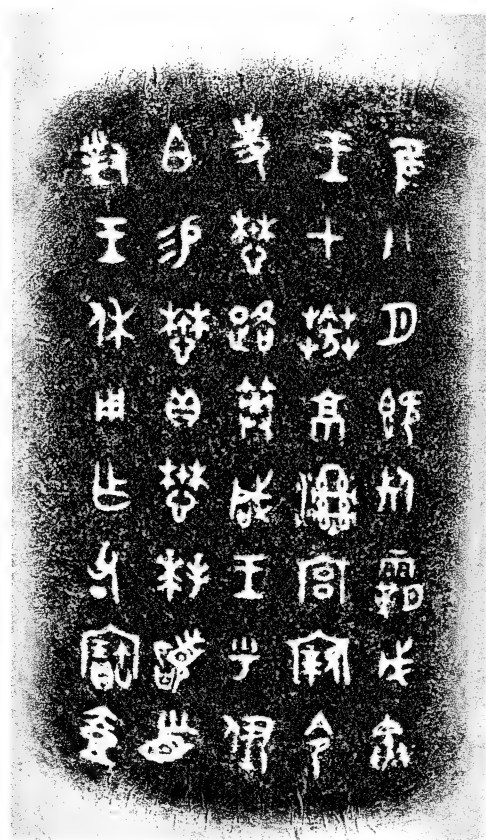 隹八月既死霸戊寅
王才𦱠京溼宮寴令
史懋路筭咸王乎伊
白易懋貝懋拜𩒨首
對王休用乍父丁寶壺